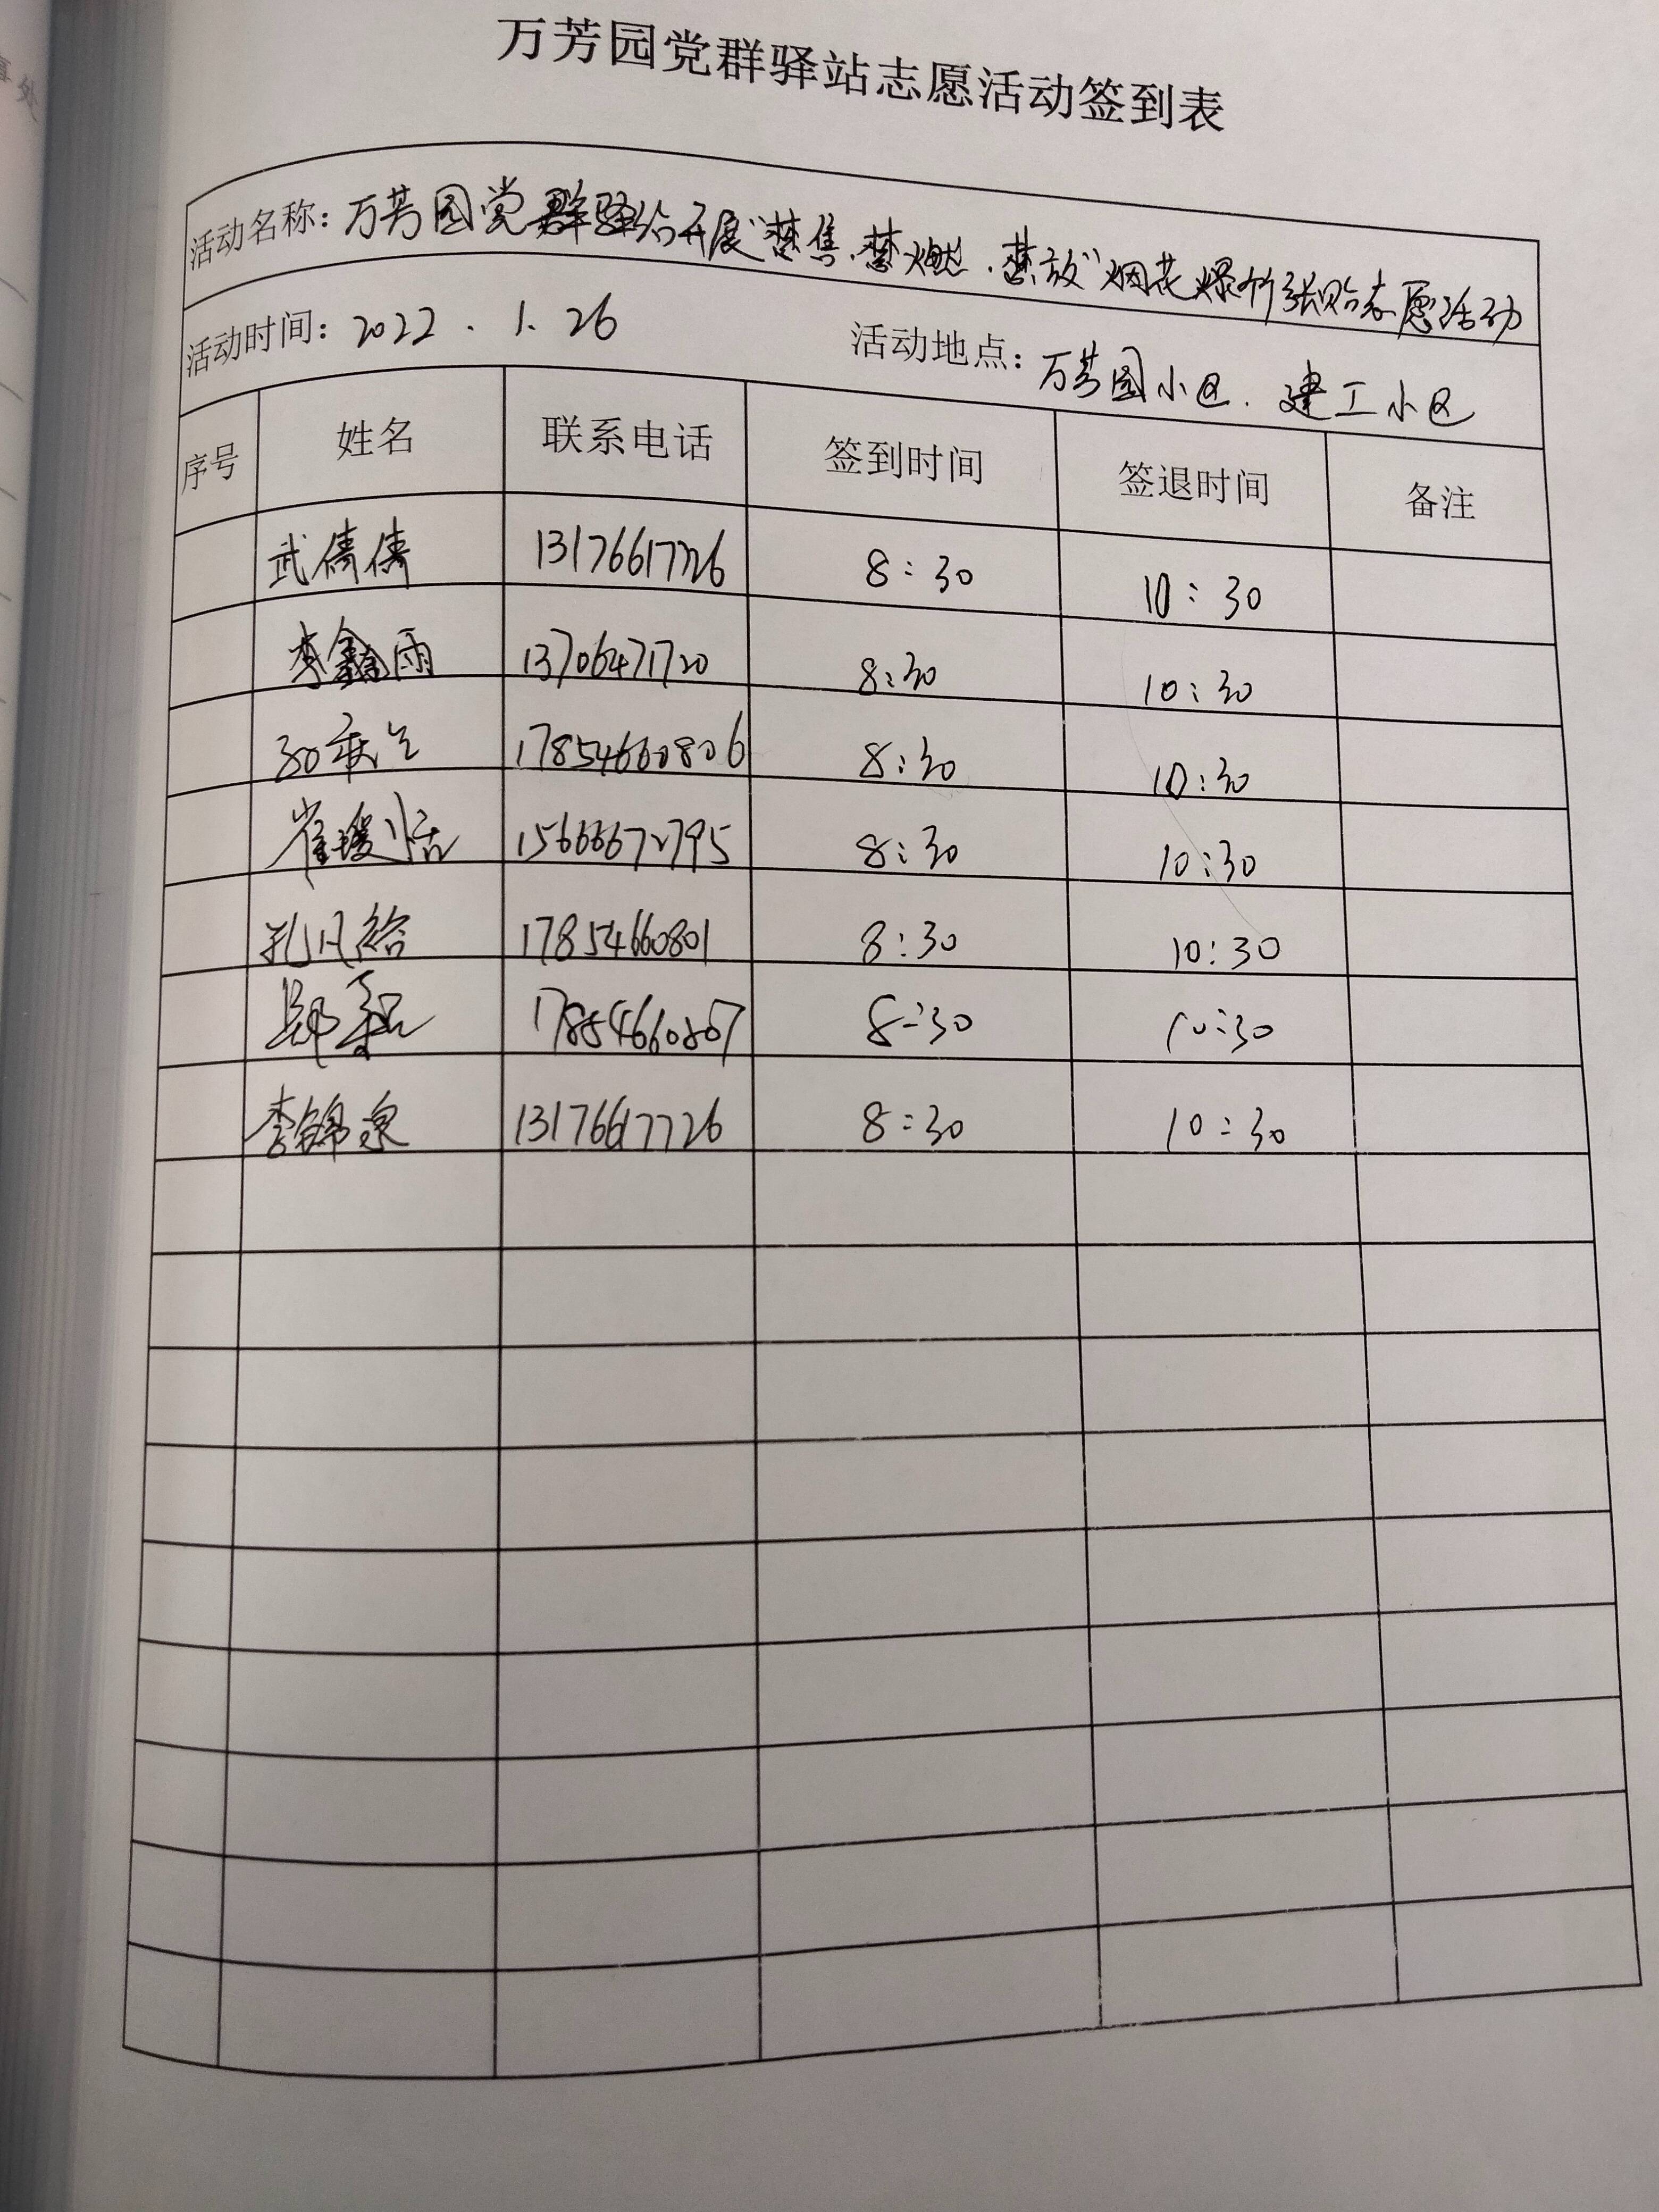 万芳园党群驿站志愿活动签到表
活动名称：万芳园党群驿站开展"禁售.禁燃.禁放"烟花爆竹张贴志愿活动
活动时间：2022.1.26 活动地点：万芳园小区.建工小区
序号 姓名 联系电话 签到时间 签退时间 备注
武倩倩 13176617726 8:30 10:30
李鑫雨 13706471720 8:30 10:30
17854660806 8:30 10:30
崔瑷恬 15666672795 8:30 10:30
孔凡 17854660801 8:30 10:30
郑 17854660807 8:30 10:30
李锦泉 13176617726 8:30 10:30